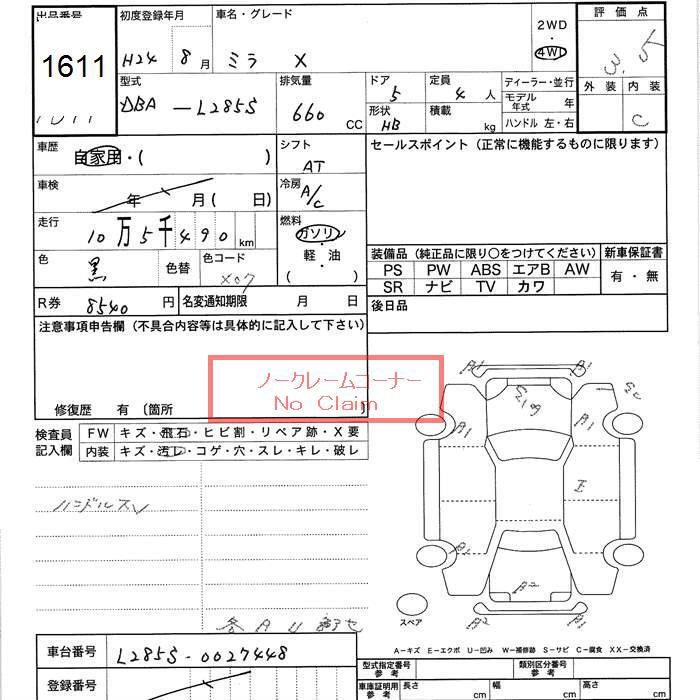 出品番号 初度登録年月 車名・グレード 2WD 評価点
1611 H24 8月 ミラ X 4WD 3.5
型式 排気量 ドア 定員 ディーラー・並行 外装 内装
DBA-L285S 660 CC 5 4人 モデル年式 年 C
形状 積載 ハンドル 左・右
HB kg
車歴 自家用・( ) シフト セールスポイント (正常に機能するものに限ります)
AT
車検 年 月 ( 日) 冷房 A/C
走行 10万5千490km 燃料 ガソリン
・
軽・油
( )
色 黒 色替 色コード X07
装備品 (純正品に限り○をつけてください) 新車保証書
PS PW ABS エアB AW 有・無
SR ナビ TV カワ
R券 8540円 名変通知期限 月 日 後日品
注意事項申告欄 (不具合内容等は具体的に記入して下さい)
ノークレームコーナー
No Claim
修復歴 有 〔箇所
検査員 FW キズ・飛石・ヒビ割・リペア跡・X要
記入欄 内装 キズ・汚レ・コゲ・穴・スレ・キレ・破レ
A1 A1
A1 A1
E
ハンドルスレ
A1 A1
A2
A2
スペア
各AU
A-キズ E-エクボ U-凹み W-補修跡 S-サビ C-腐食 XX-交換済
車台番号 L285S-0027448 型式指定番号 参考 類別区分番号 参考
登録番号 車庫証明用 参考 長さ cm 幅 cm 高さ cm